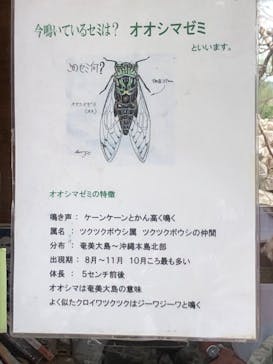 今鳴いているセミは？ オオシマゼミ
といいます。
このセミ何？
オオシマゼミの特徴
鳴き声 ： ケーンケーンとかん高く鳴く
属名 ： ツクツクボウシ属 ツクツクボウシの仲間
分布 ： 奄美大島～沖縄本島北部
出現期 ： 8月～11月 10月ころ最も多い
体長 ： 5センチ前後
オオシマは奄美大島の意味
よく似たクロイワツクツクはジーワジーワと鳴く